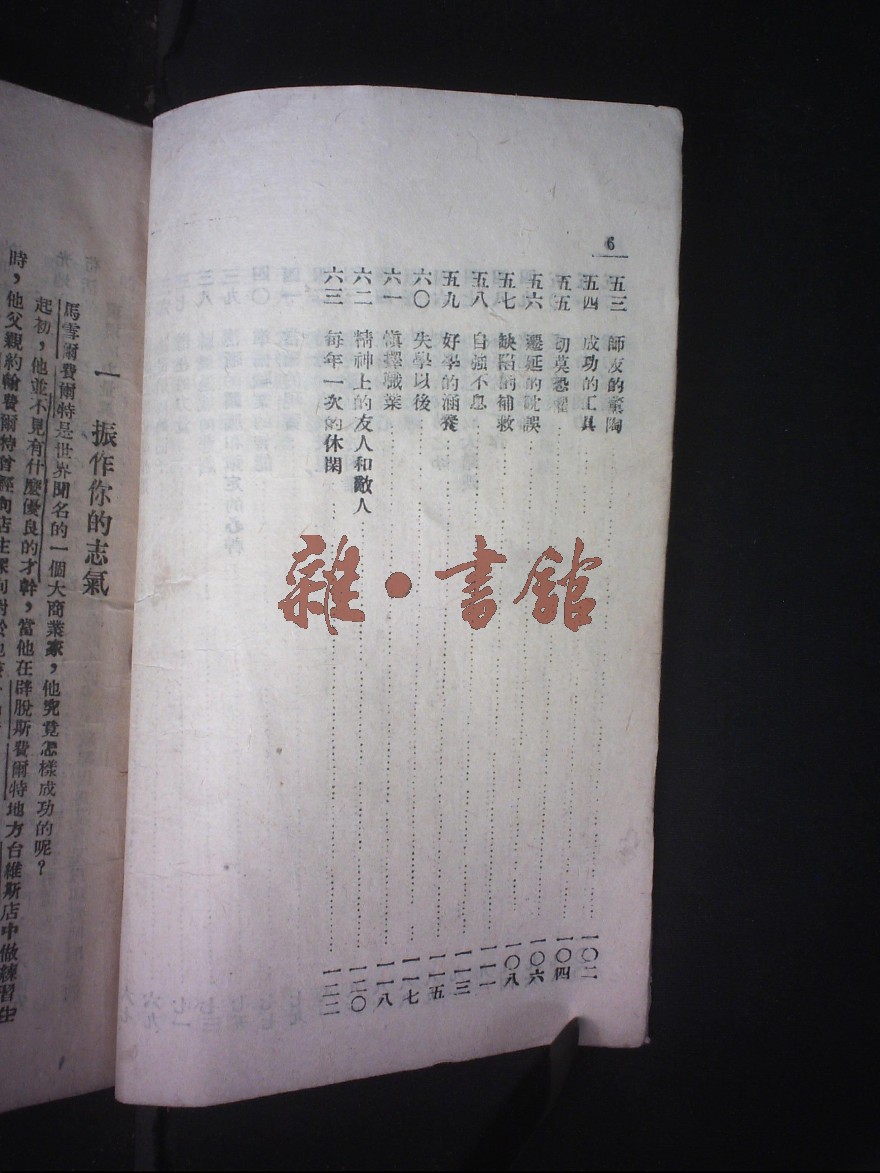 6
五三 師友的薰陶 一〇二
五四 成功的工具 一〇四
五五 切莫恐懼 一〇六
五六 遷延的耽誤 一〇八
五七 缺陷的補救 一一一
五八 自强不息 一一三
五九 好學的涵養 一一五
六〇 失學以後 一一七
六一 愼擇職業 一一八
六二 精神上的友人和敵人 一二〇
六三 每年一次的休閑 一二二
雜·書館
一 振作你的志氣
馬雪爾費爾特是世界聞名的一個大商業家，他究竟怎樣成功的呢？
起初，他並不見有什麼優良的才幹，當他在辟脫斯費爾特地方台維斯店中做練習生
時，他父親約翰費爾特曾經向店主